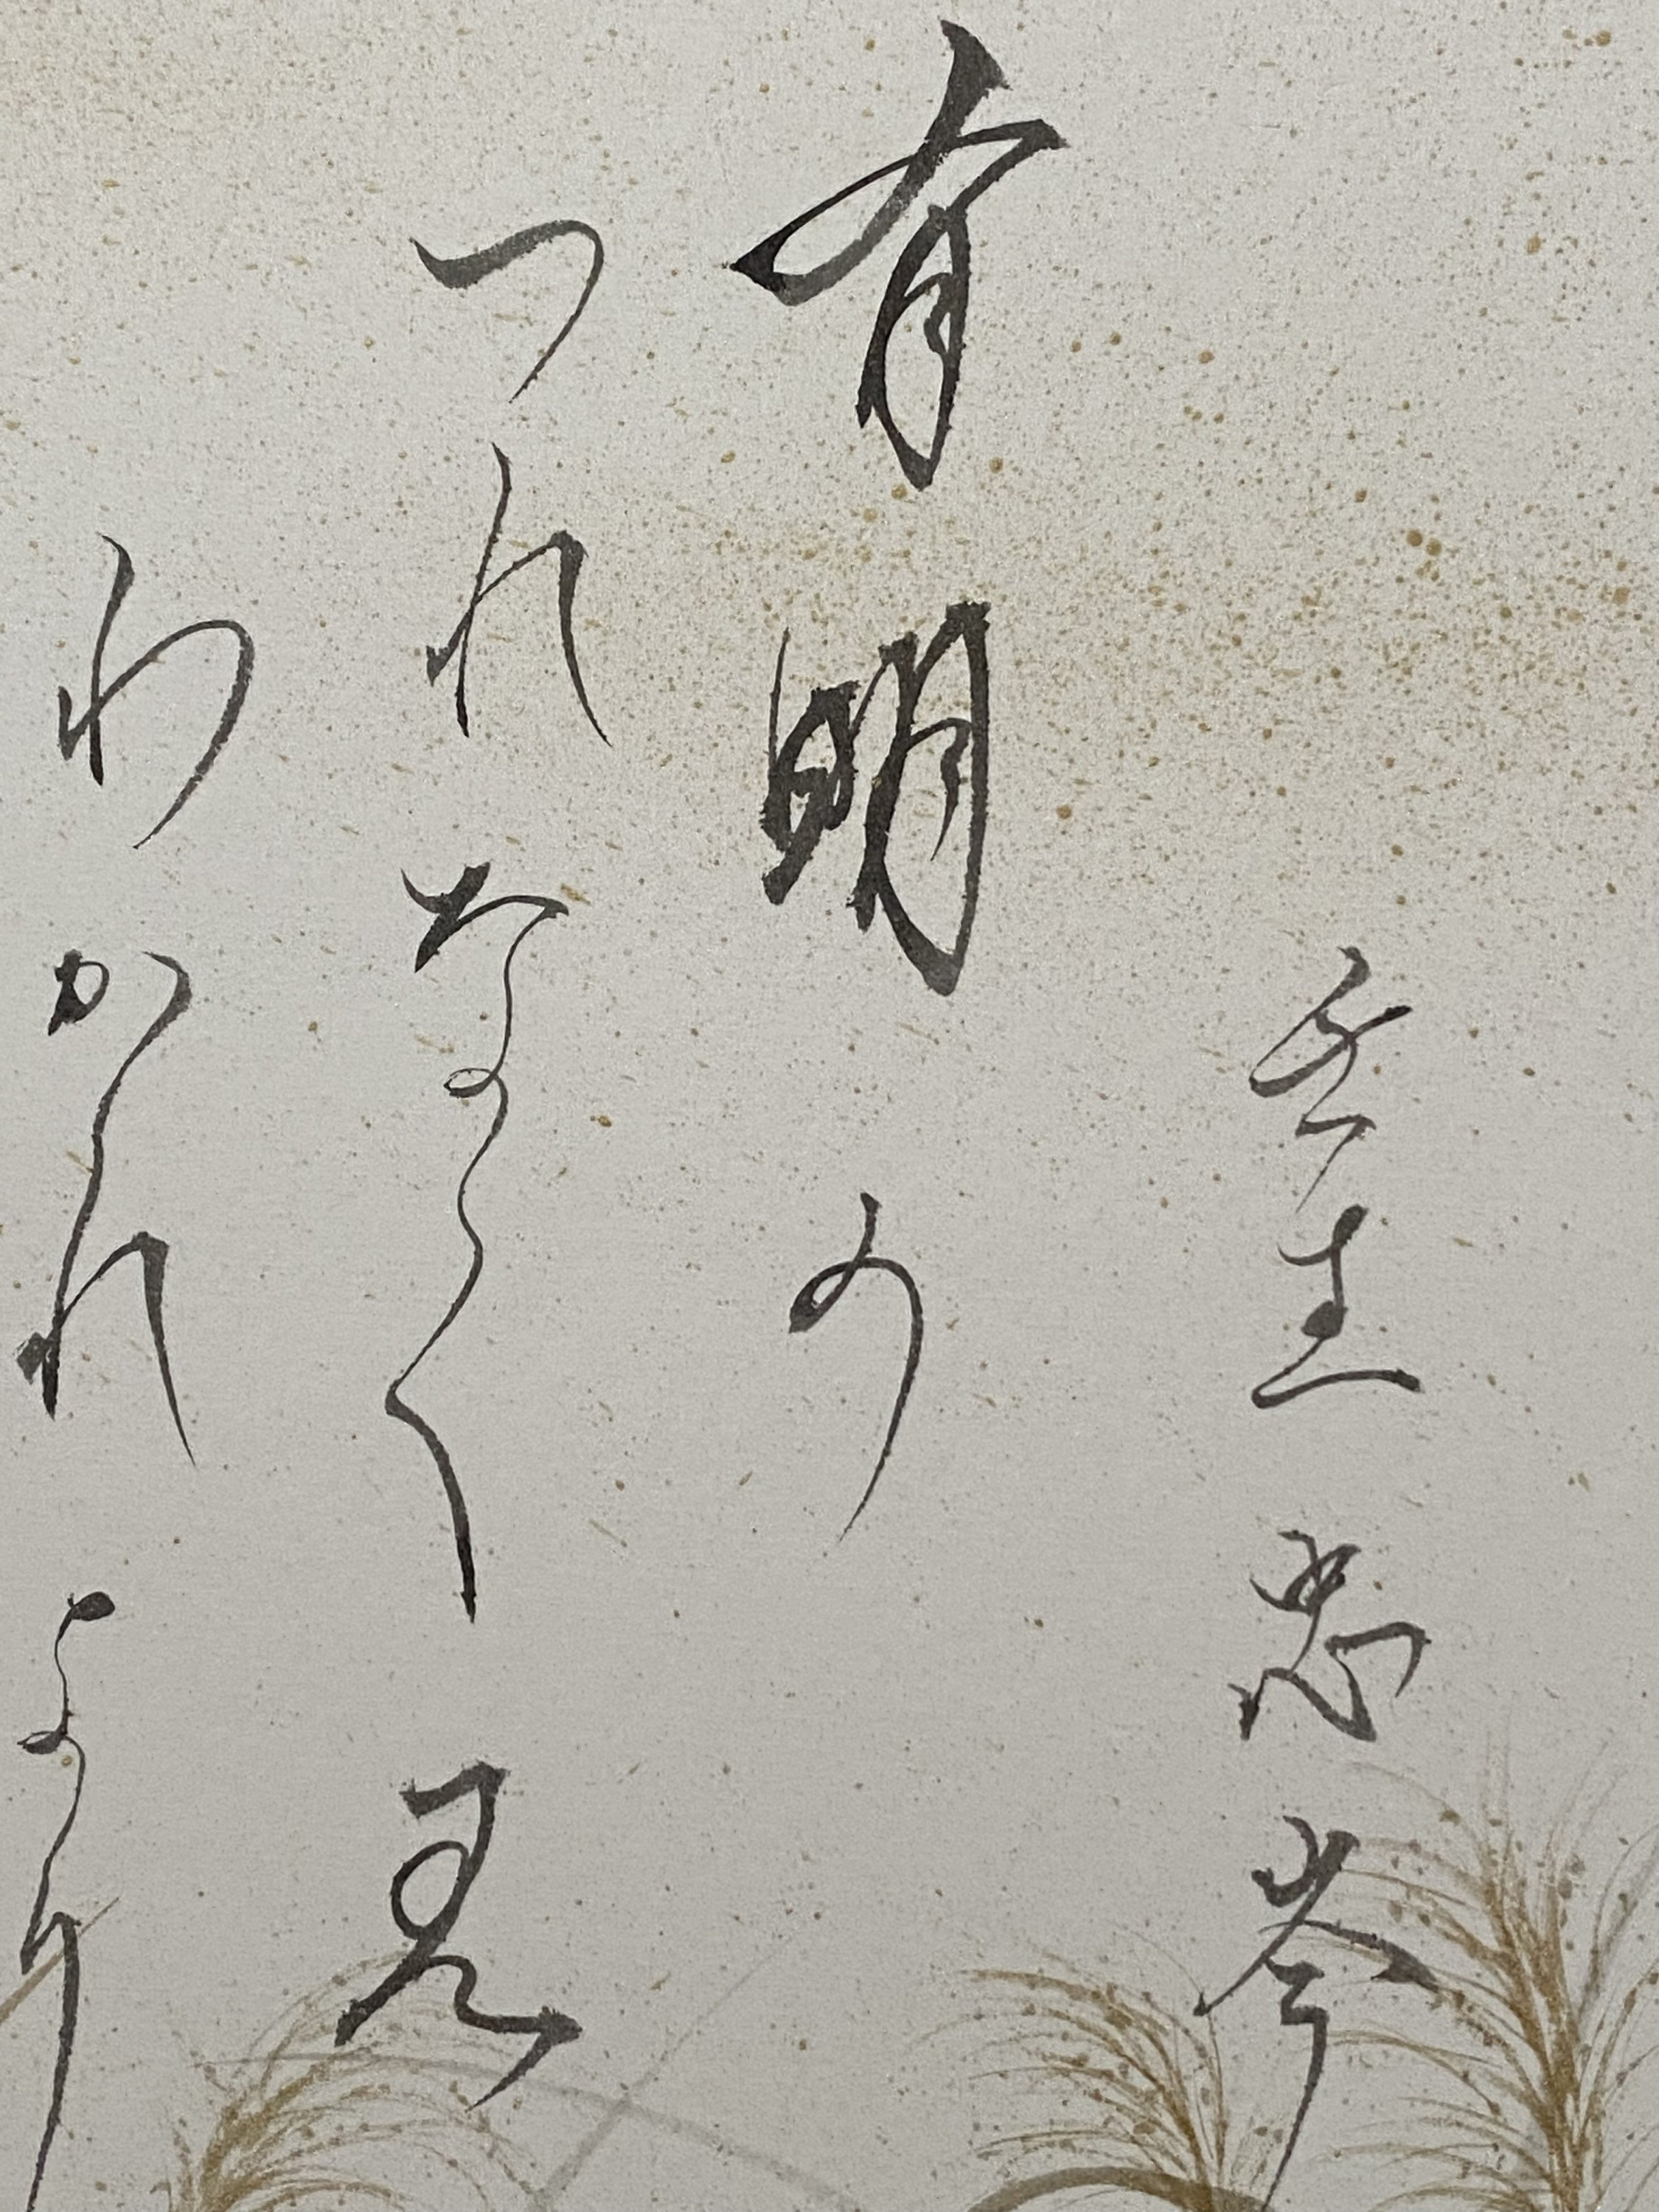 壬生忠岑
有明の
つれなく見
わかれより